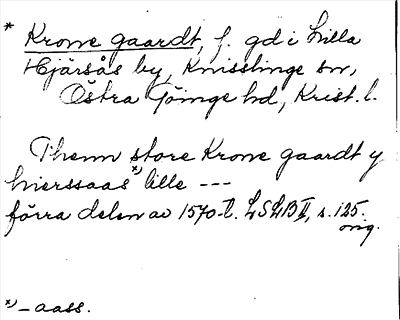 * Krone gaardt, f. gd i Lilla
Hjärsås by, Knisslinge sn,
Östra Göinge hd, Krist. l.
Thenn store Krone gaardt y
hierssaas*) lille ---
förra delen av 1570-t. LSLB II, s. 125.
orig.
*) - aass.